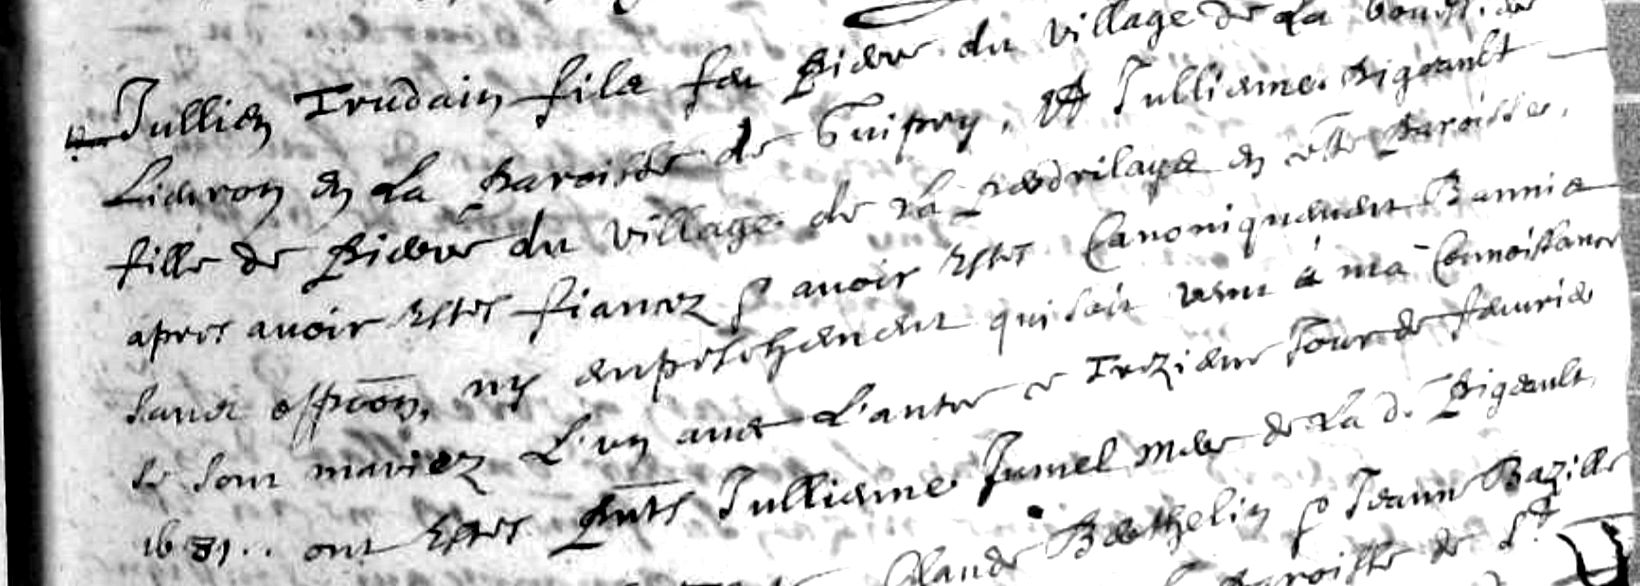 Jullien Trudain fils feu Pierre du village de La
Lievron en La Paroisse de Guipry, Et Jullienne Pigeault
fille de Pierre du village de La en cette Paroisse,
apres avoir Estes fiancez & avoir Estes Canoniquement Bannie
sans opp̄on, ny enpeschement qui soit venu à ma Connoissance
se sont mariez L'un avec L'autre ce Treziesme Jour de feuvrie
1681.. ont Estes P̄nts Jullienne Jumel mere de La d. Pigeault,
Claude Berthelin & Jeanne Bazille
Paroisse de St